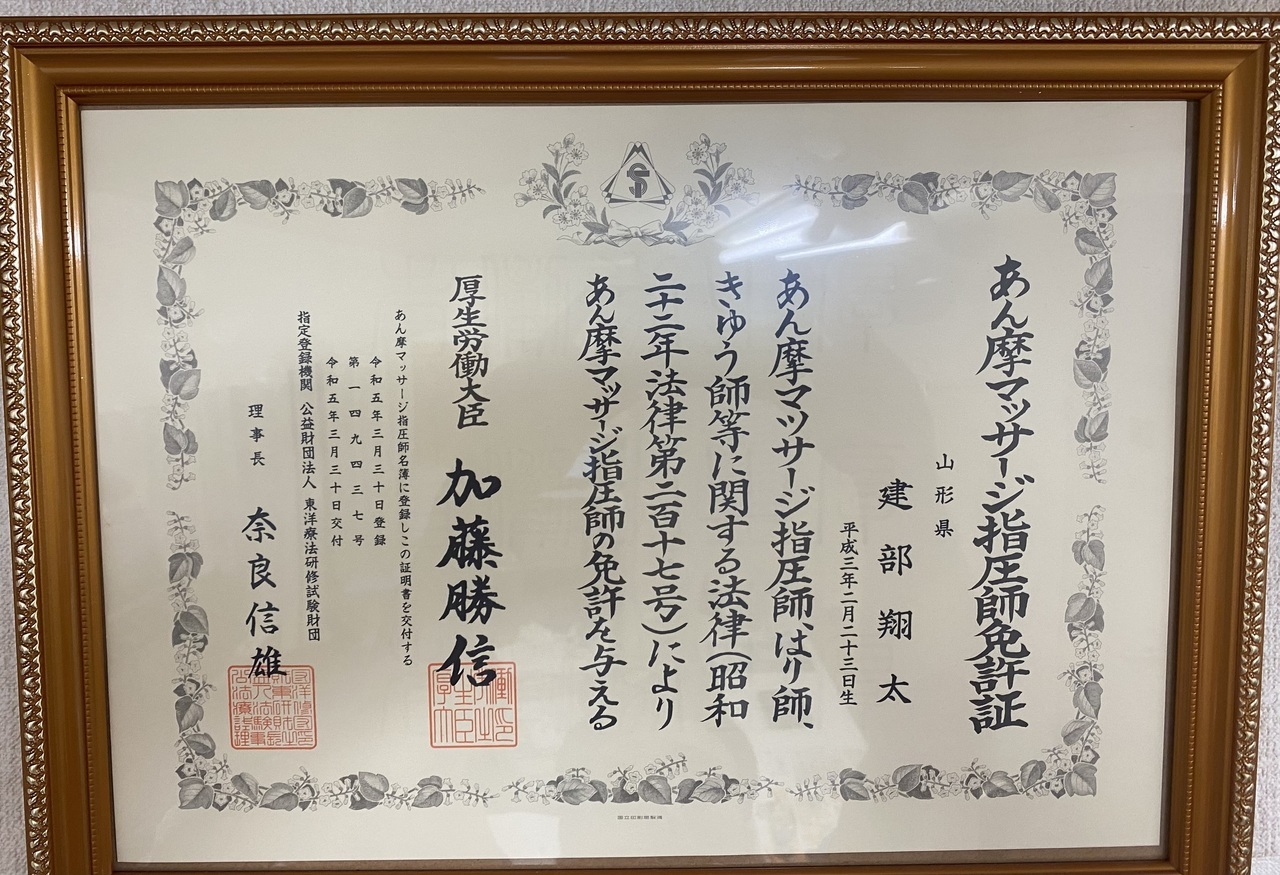 あん摩マッサージ指圧師免許証
山形県
建部翔太
平成三年二月二十三日生
あん摩マツサージ指圧師、はり師、
きゆう師等に関する法律(昭和
二十二年法律第二百十七号)により
あん摩マッサージ指圧師の免許を与える
厚生労働大臣 加藤勝信
あん摩マッサージ指圧師名簿に登録しこの証明書を交付する
令和五年三月三十日登録
第一四九四三七号
令和五年三月三十日交付
指定登録機関 公益財団法人 東洋療法研修試験財団
理事長 奈良信雄
国立印刷局製造